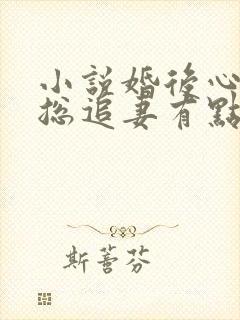 小說婚後心
總追妻有點
斯蕾芬